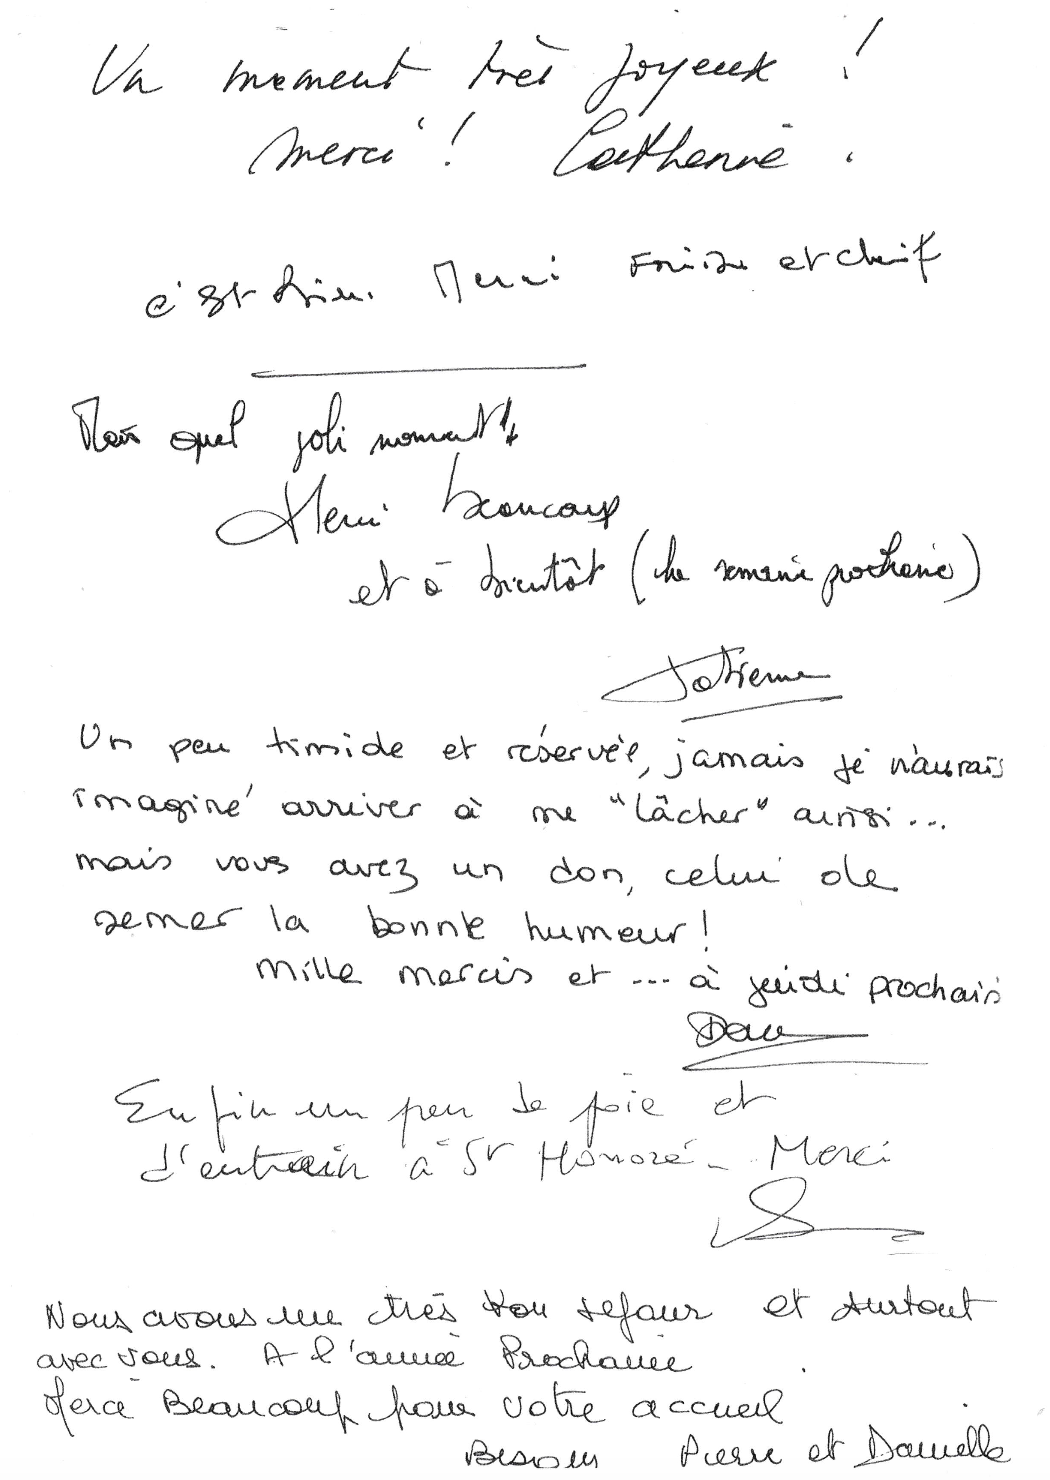 Un moment très joyeux !
merci ! Catherine .
c'est bien. Merci et
Mais quel joli moment !
Merci beaucoup
et à bientôt (la semaine prochaine)
Un peu timide et réservée, jamais je n'aurais
imaginé arriver à me "lâcher" ainsi...
mais vous avez un don, celui de
semer la bonne humeur !
Mille mercis et ... à jeudi prochain
Enfin un peu de joie et
d'entrain à St Honoré - Merci
Nous avons eu très bon sejour et surtout
avec vous. A l'année Prochaine
Merci Beaucoup pour votre accueil
Pierre et Danielle